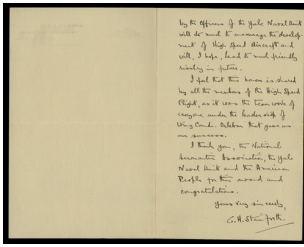 by the Officers of the Yale Naval Unit
will do much to encourage the develop-
ment of High Speed Aircraft and
will, I hope, lead to much friendly
rivalry in future.
I feel that this honor is shared
by all the members of the High Speed
Flight, as it was the team work of
everyone under the leadership of
Wing Comdr. Orlebar that gave us
our success.
I thank you, the National
Aeronautic Association, the Yale
Naval Unit and the American
People for this award and
congratulations.
Yours very sincerely,
G. H. Stainforth.